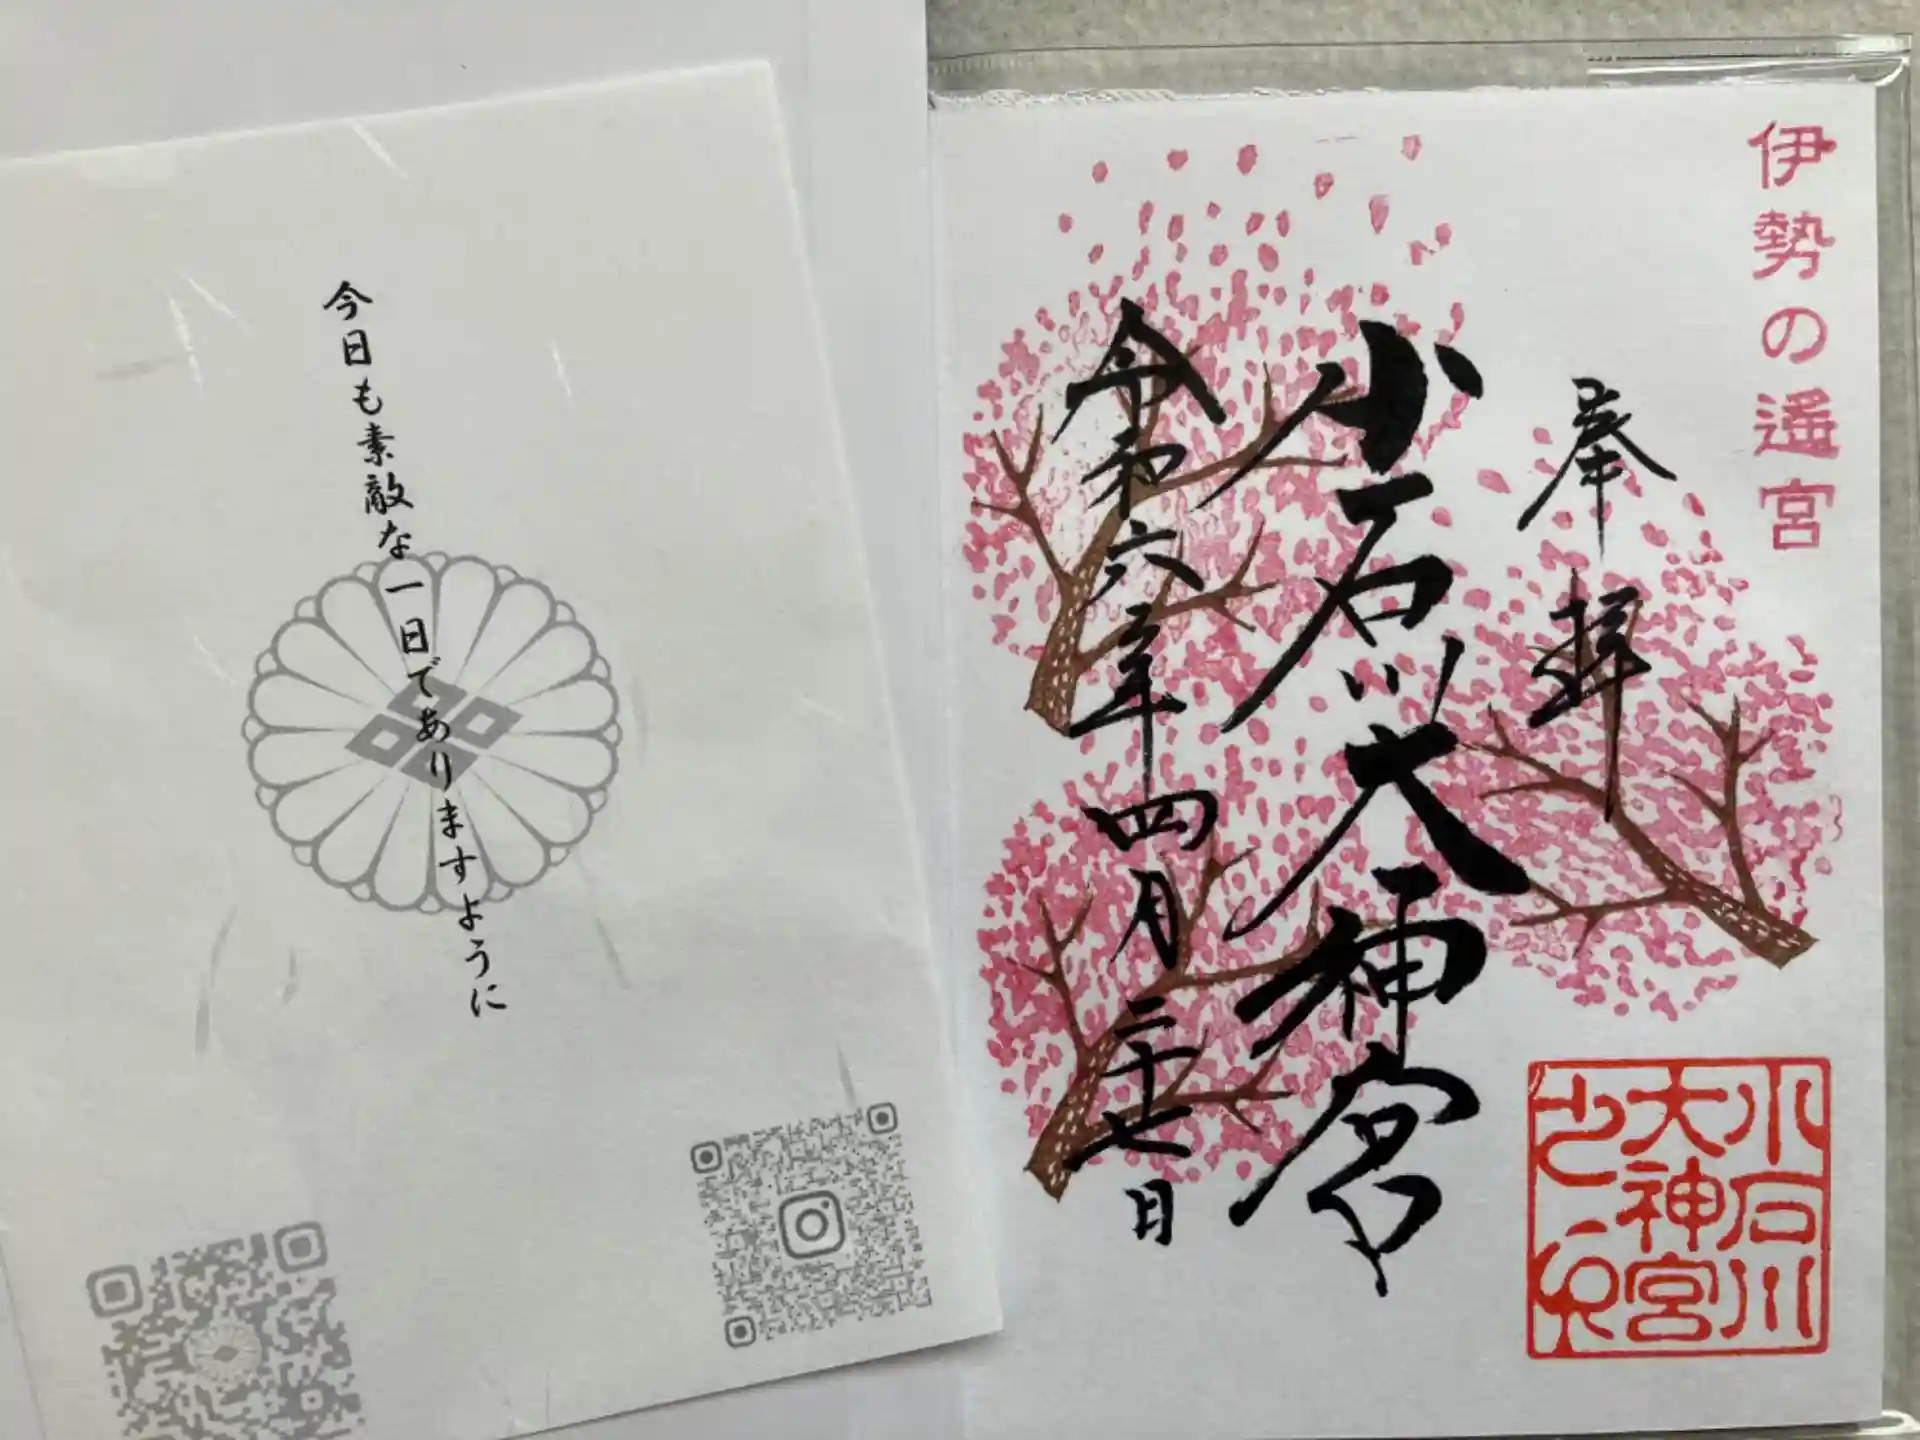 今日も素敵な一日でありますように
伊勢の遥宮
奉拝
小石川大神宮
令和六年四月二十七日
小石川
大神宮
之印